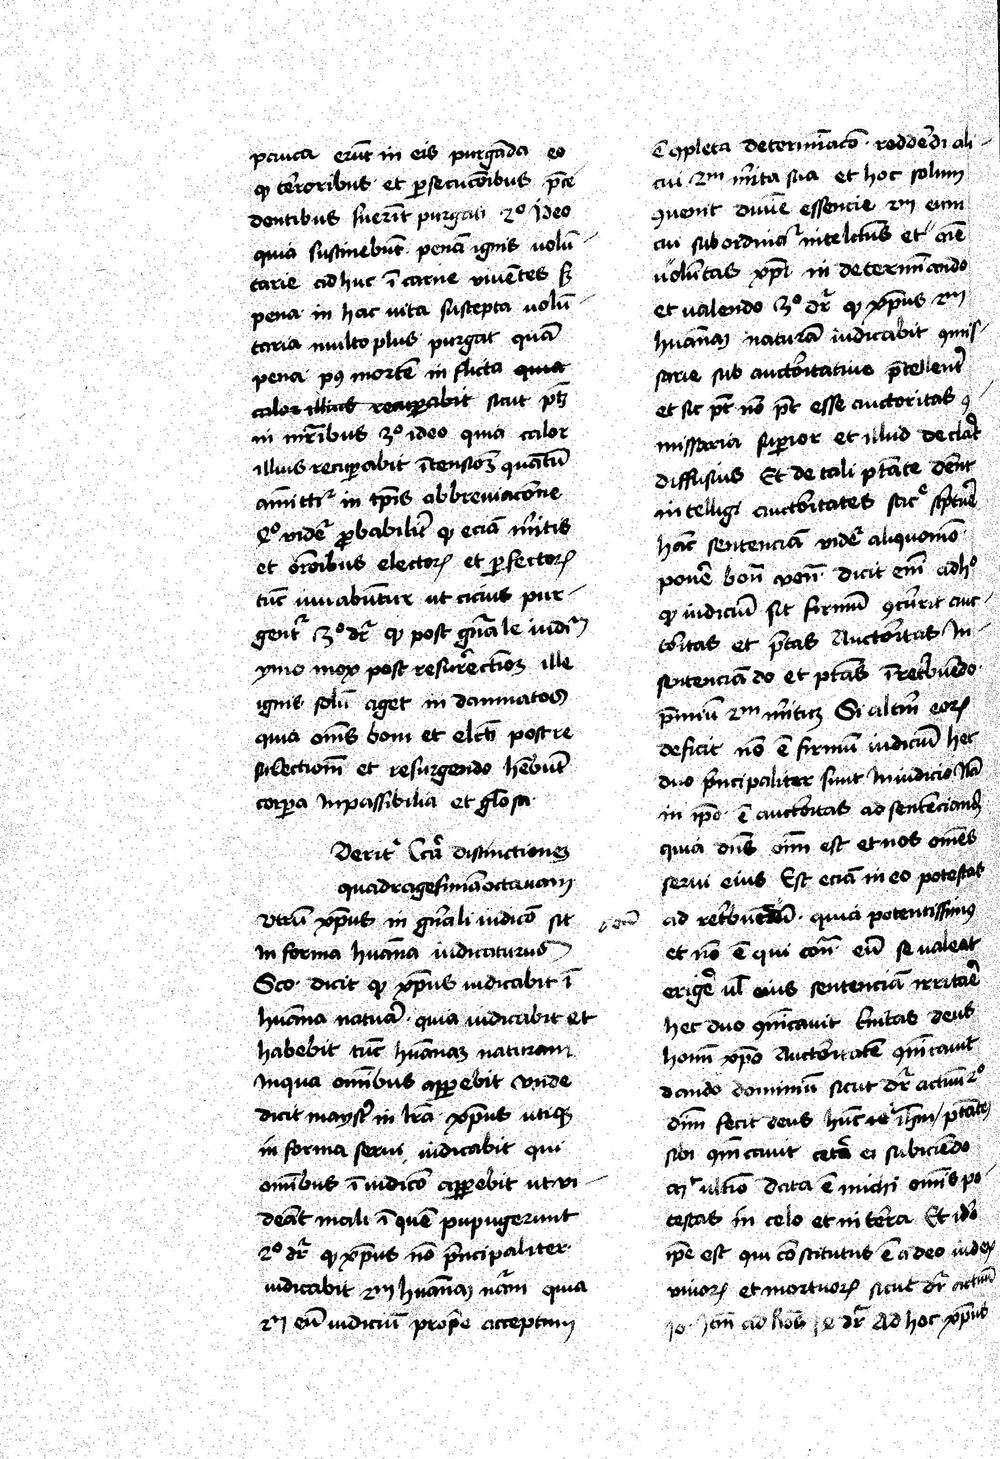 pauca erūt in eis purgāda eo
ꝙ terroribus et ꝑsecucōibus p̄ce
dentibus fuerīt purgati 2º Ideo
quia sustinebūt penā ignis volū
tarie adhuc ī carne viuētes sꝫ
pena in hac vita suscepta volū
taria multo plus purgat quā
pena pꝰ mortē in flicta quia
calor illius recuꝑabit sicut ptꝫ
in mr̄ibus 3º ideo quia calor
illius recuꝑabit ītensiōꝫ quātū
amittit᷑ in tp̄is abbreviacōne
vidēr ꝓbabilit᷑ ꝙ eciā mr̄itis
et orōibus electoꝝ et ꝑfectoꝝ
tūc iuvabūtur ut cicius pur
gent᷑ 3º dr̄ ꝙ post gn̄ale iudiꝫ
ymo mox post resurrectiōꝫ ille
ignis solū aget in damnatos
quia om̄s boni et elcti post re
surrectionē et resurgendo hēbūt
corꝑa inpassibilia et glōsa
Verit᷑ Circa distinctionem
quadragesimāoctauam
Utrū xp̄us in gn̄ali iudicō sit
In forma humāna iudicaturus
Sco dicit ꝙ xp̄us iudicabit ī
humāna natura quia iudicabit et
habebit tūc humānaꝫ naturam
Inqua omībus apꝑebit vnde
dicit maystr̄ in lr̄a xp̄us utiqꝫ
in forma servi iudicabit qui
omībus ī iudicō apꝑebit ut vi
deāt mali ī quē pupugerunt
2º dr̄ ꝙ xp̄us nō p̄ncipaliter
iudicabit 2m humānaꝫ nāꝫ quia
2m eū iudiciū prop̄e acceptum
Cōpleta determīacō reddēdi ali
cui 2m mr̄ita sua et hoc solum
ꝯuenit diuīe essencie 2m eum
cui subordinat᷑ intelctus et
volūtas xp̄i in determīando
et valendo 3º dr̄ ꝙ xp̄us 2m
humānaꝫ naturā iudicabit ꝯmis
sarie sub auctoritatiue p̄cellent᷑
et sic pt̄ nō pt̄ esse auctoritas ꝯ
missaria supior et illud declar̄
diffusius Et de tali ptāte dēnt
intelligi auctoritates sac᷑ sc̄ptur̄
hāc sentenciā vidēr aliquomō
ponē bon̄ ven̄ dicit em̄ adhº
ꝙ iudiciū sit firmū ꝯcurrit auc
toritas et ptās Auctoritas In
sentenciādo et ptās ī retribuēdo
p̄miū 2m mr̄itum Si altm̄ eoꝝ
deficit nō ē firmū iudiciū hec
duo p̄ncipaliter sunt In iudicio
in ip̄o ē auctoritas ad sentenciandꝫ
quia dn̄s oīm est et nos om̄es
servi eius Est eciā in eo potestas
ad retribuēdū quia potentissimꝰ
et nō ē qui con̄ eū se valeat
erigē ul̄ eius sentenciā irritare
hec duo ꝯmīcauit trinitas deus
homī xp̄o Auctoritatē ꝯmīcauit
dando dominiū sicut dr̄ actuū 2º
dn̄m fecit deus hūc ptātem
sibi ꝯmīcauit cetā ei subiciēdo
ultio Data ē michi om̄s po
testas in celo et in terra Et ideo
ip̄e est qui cōstitutus ē a deo iudex
vivoꝝ et mortuoꝝ sicut dr̄ actuū
dr̄ Ad hoc xp̄us